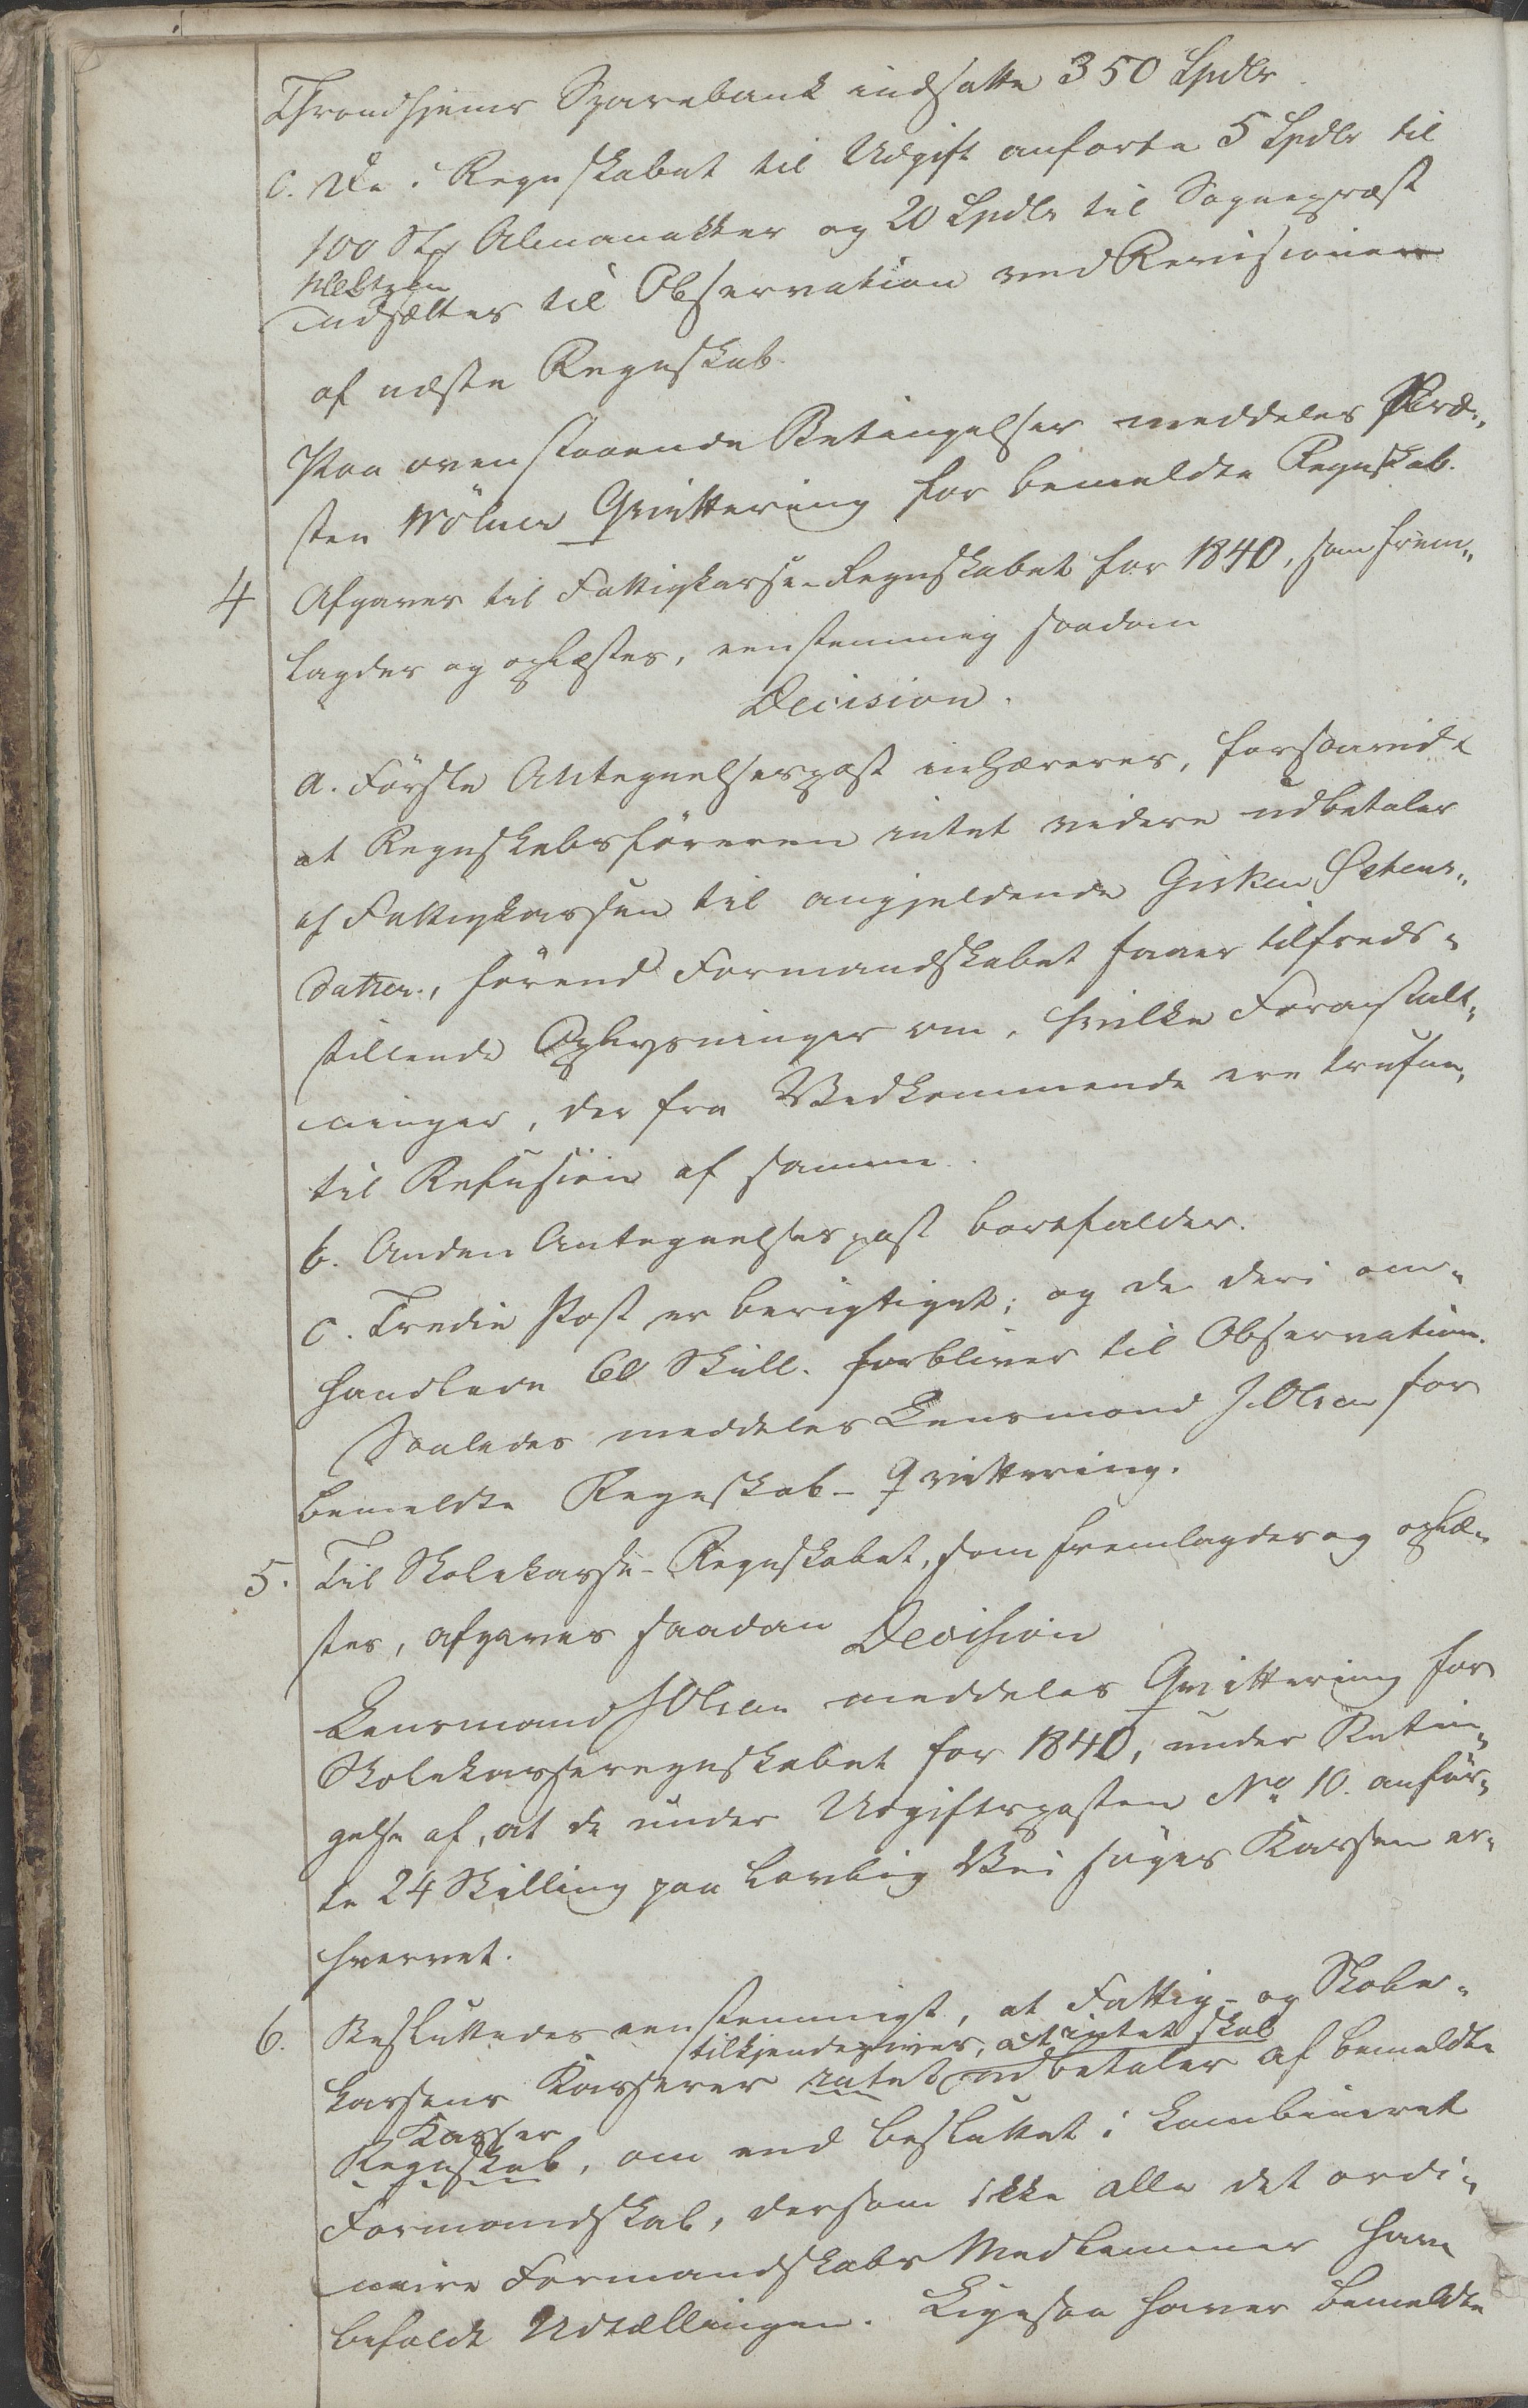 Throndhjems Sparebank indsatte 350 Spdlr
c. De i Regnskabet til Udgift anførte 5 Spdlr til
100 Stk Almanakker og 20 Spdlr til Sognepræst
indsættes til Observation ved Revisionen
af næste Regnskab.
Paa ovenstaaende Betingelser meddeles Præ„
sten Wölner Qvittering for bemeldte Regnskab.
4 Afgaves til Fattigkasse-Regnskabet for 1840, som frem„
lagdes og oplæstes, eenstemmig saadan
Decision.
a. Første Antegnelsespost inhæreres, forsaavidt
at Regnskabsføreren intet videre udbetaler
af Fattigkassen til angjældende
datter, førend Formandskabet faaer tilfreds„
stillende Oplysninger om, hvilke Foranstalt„
ninger, der fra Vedkommende ere trufne,
til Refusion af samme.
b. Anden Antegnelsespost bortfalder.
c. Tredie Post er berigtiget; og de deri om„
handlede 60 Skill. forbliver til Observation.
Saaledes meddeles Lensmand J. Olsen for
bemeldte Regnskab - Qvittering.
5. Til Skolekasse-Regnskabet, som fremlagdes og oplæ„
stes, afgaves saadan Decision
Lensmand J Olsen meddeles Qvittering for
Skolekasseregnskabet for 1840, under Betin„
gelse af, at de under Udgiftsposten No 10. anför„
te 24 Skilling paa lovlig Vei søges Kassen er„
hvervet.
6. Besluttedes eenstemmigt, at Fattig- og Skole„
tilkjendegives, at intet skal
kassens Kasserer intet udbetaler af bemeldte
Kasser
Regnskab, om end besluttet i kombineret
Formandskab, dersom ikke alle det ordi„
naire Formandskabs Medlemmer have
befalet Udtællingen. Ligesaa haver bemeldte